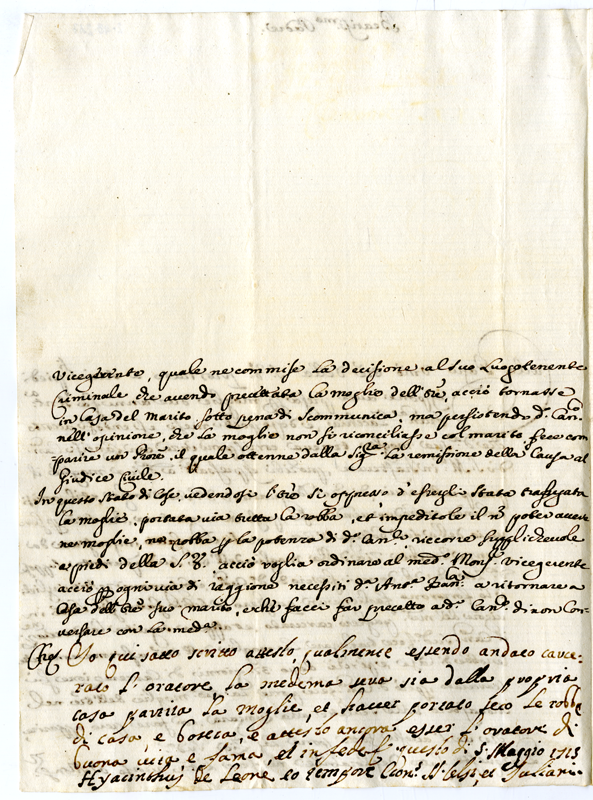 Vicegerente, quale ne commise la decisione al suo Luogotenente
Criminale, che avendo precettata la moglie dell'Ore, acciò tornasse
in Casa del Marito sotto pena di scommunica, ma persistendo d.º Can.co
nell'opinione, che la moglie non si riconciliasse col marito, fece com-
parire un Prore il quale ottenne dalla Sig.ra la remissione della Causa al
Giudice Civile.
In questo stato di Cose vedendosi l'Ore si oppresso d'esergli stata trafugata
la moglie, portata via tutta la robba, et impeditole il nō poter avere
ne moglie, ne robba p la potenza di d.º Can.co ricorre supplichevole
a piedi della S. V. acciò voglia ordinare al med.º Mons.r Vicegerente
acciò p ogni via di raggione necessiti d.a Ant.a a ritornare a
Casa dell'Ore suo marito, e che facci far precetto a d.º Can.co di non Con-
versare con la med.a
Io qui sotto scritto attesto, qualmente essendo andato carce-
rato l'oratore, la medema sera sia dalla propria
casa partita la moglie, et haver portato seco le robbe
di casa, e boteca, e attesto ancora esser l'oratore di
buona vita e fama, et in fede q questo di 5. Maggio 1713
Hyacinthus de Leone eo tempore SS. Celsi, et Juliani